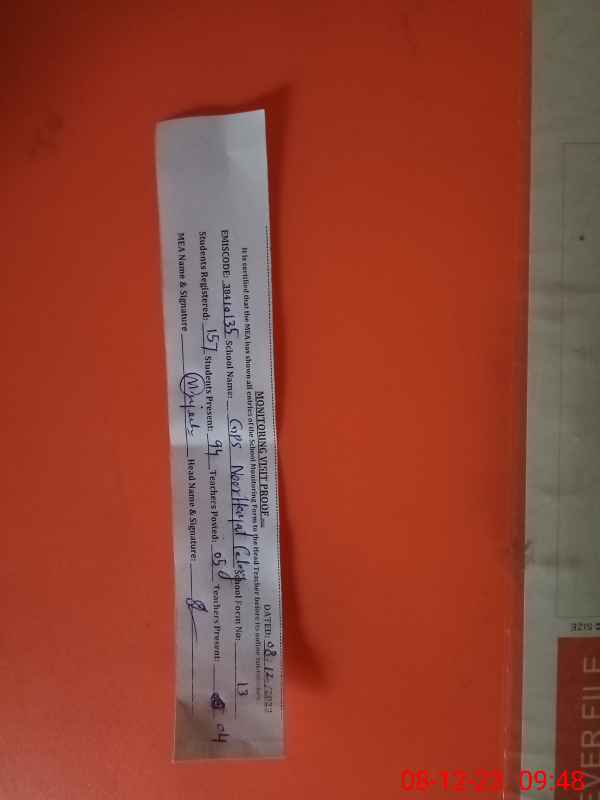 MONITORING VISIT PROOF
DATED: 08.12./2023
It is certified that the MEA has shown all entries of the School Monitoring Form to the Head Teacher before its online submission.
EMISCODE: 38410135 School Name: GPS Noor Hayat School Form No: 13
Students Registered: 157 Students Present: 94 Teachers Posted: 05 Teachers Present: 04
MEA Name & Signature Head Name & Signature:
SIZE
EVER FILE
08-12-23 09:48